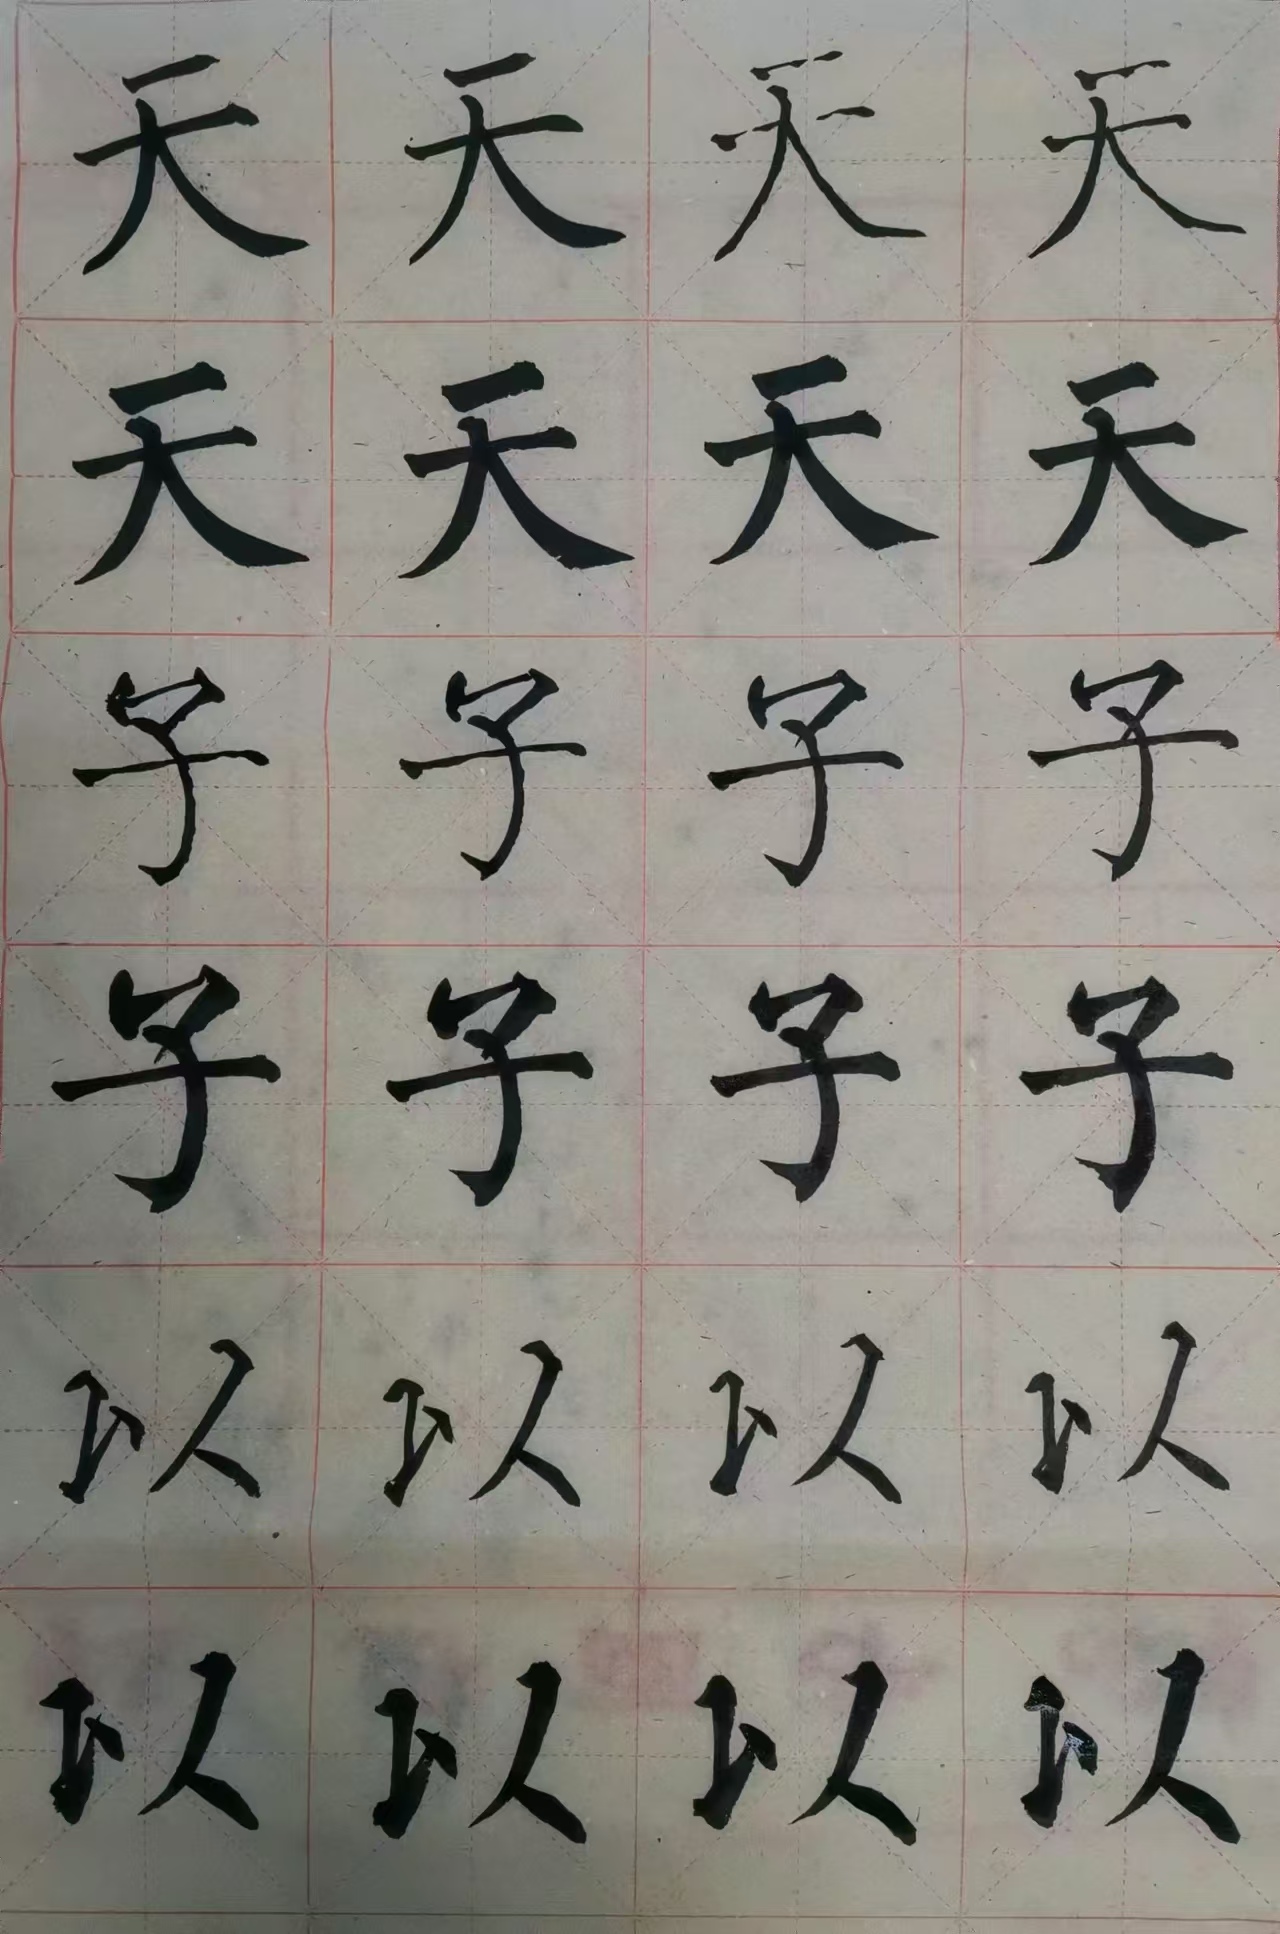 天天天天
天天天天
子子子子
子子子子
以以以以
以以以以